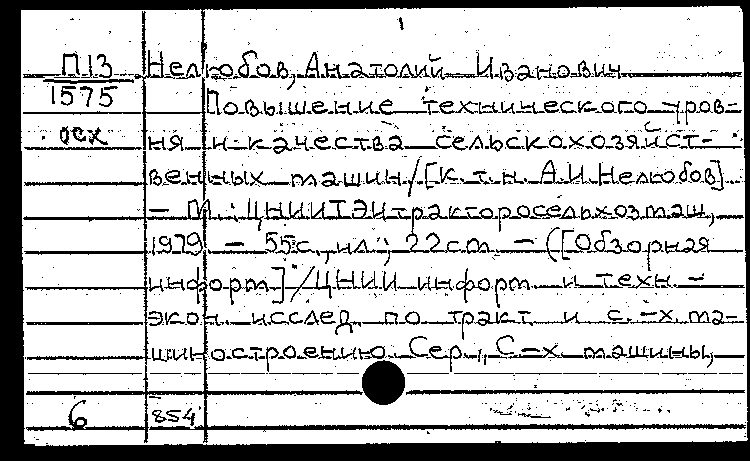 П13 Нелюбов, Анатолий Иванович
1575 Повышение технического уров-
осх ня и качества сельскохозяйст-
венных машин/[к. т. н. А.И. Нелюбов]
– М.: ЦНИИТЭИтракторосельхозмаш,
1979. – 55с., ил.; 22см. – ([Обзорная
информ]/ЦНИИ информ. и техн. –
экон. исслед. по тракт. и с.-х. ма-
шиностроению. Сер.: С-х. машины,
6 854